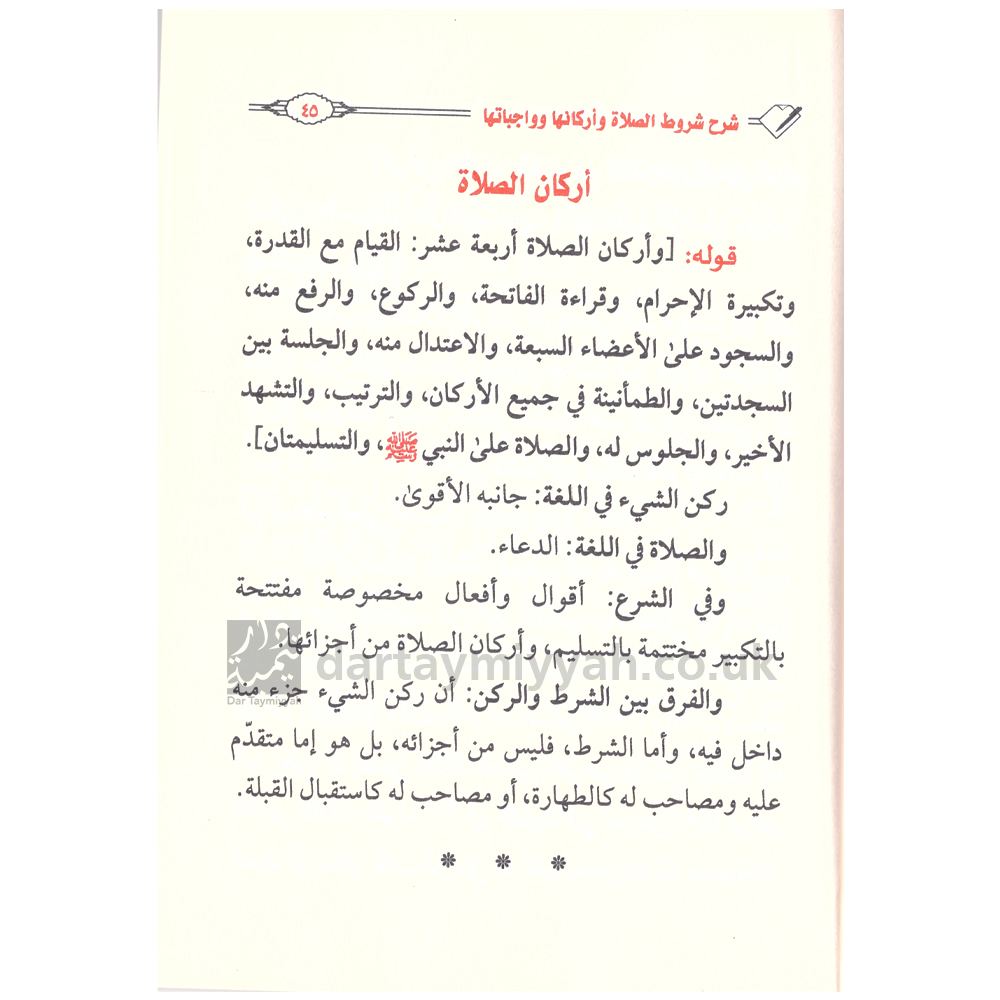 شرح شروط الصلاة وأركانها وواجباتها
٤٥
أركان الصلاة
قوله: [وأركان الصلاة أربعة عشر: القيام مع القدرة،
وتكبيرة الإحرام، وقراءة الفاتحة، والركوع، والرفع منه،
والسجود علىٰ الأعضاء السبعة، والاعتدال منه، والجلسة بين
السجدتين، والطمأنينة في جميع الأركان، والترتيب، والتشهد
الأخير، والجلوس له، والصلاة علىٰ النبي ﷺ، والتسليمتان].
ركن الشيء في اللغة: جانبه الأقوىٰ.
والصلاة في اللغة: الدعاء.
وفي الشرع: أقوال وأفعال مخصوصة مفتتحة
بالتكبير مختتمة بالتسليم، وأركان الصلاة من أجزائها.
والفرق بين الشرط والركن: أن ركن الشيء جزء منه
داخل فيه، وأما الشرط، فليس من أجزائه، بل هو إما متقدّم
عليه ومصاحب له كالطهارة، أو مصاحب له كاستقبال القبلة.
* * *
دار تيمية
Dar Taymiyyah
dartaymiyyah.co.uk